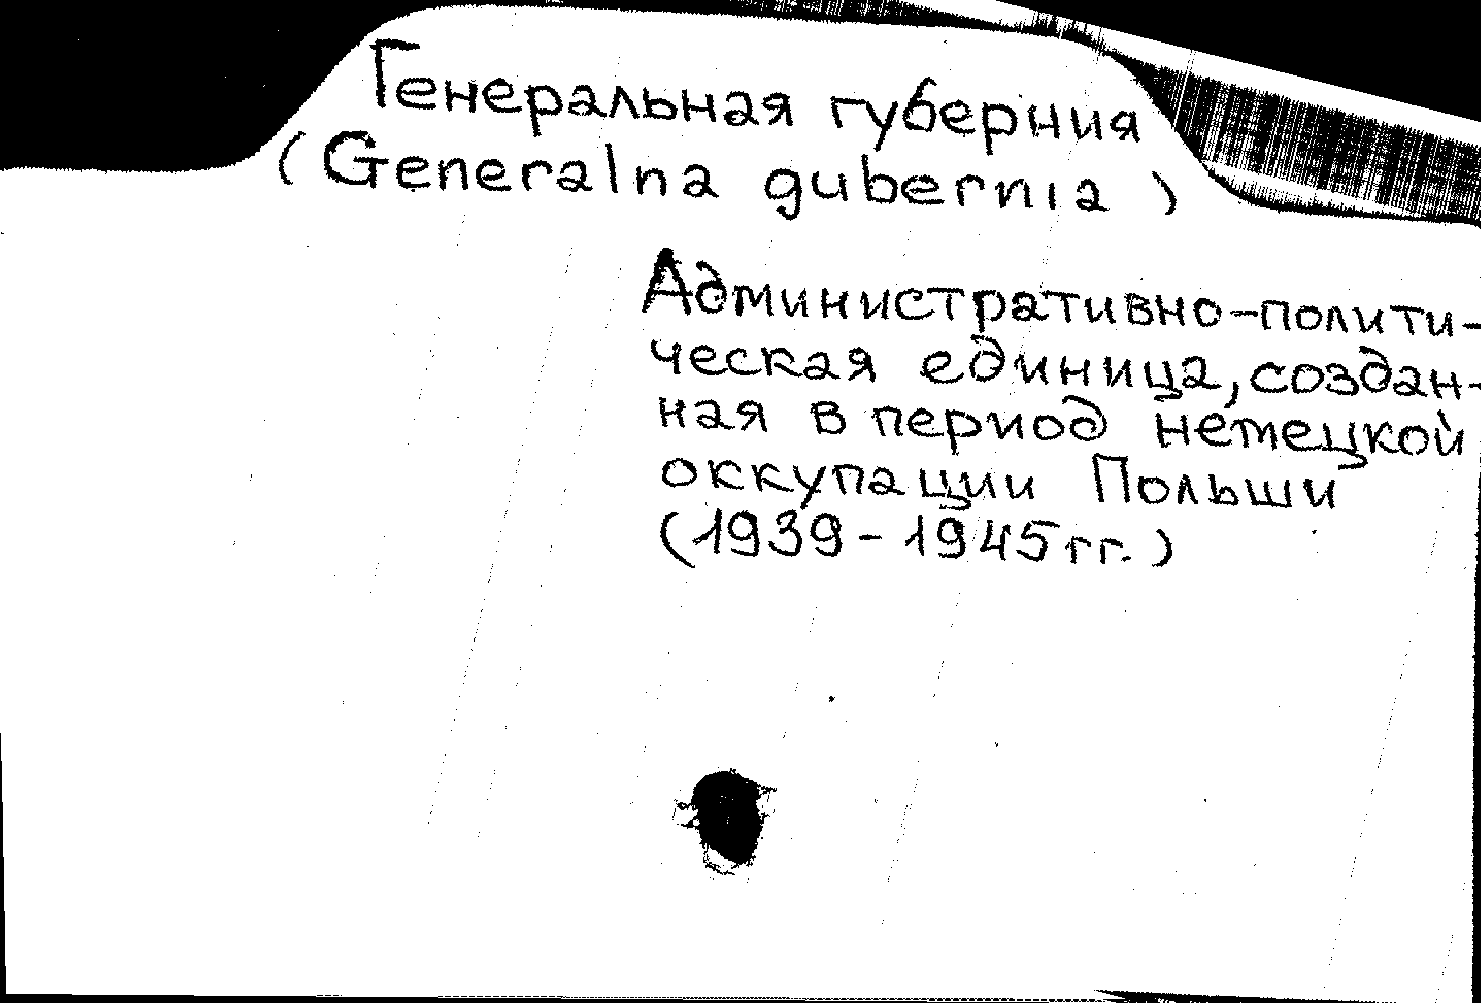 Генеральная губерния
(Generalna gubernia)
Административно-полити-
ческая единица, создан-
ная в период немецкой
оккупации Польши
(1939-1945гг.)